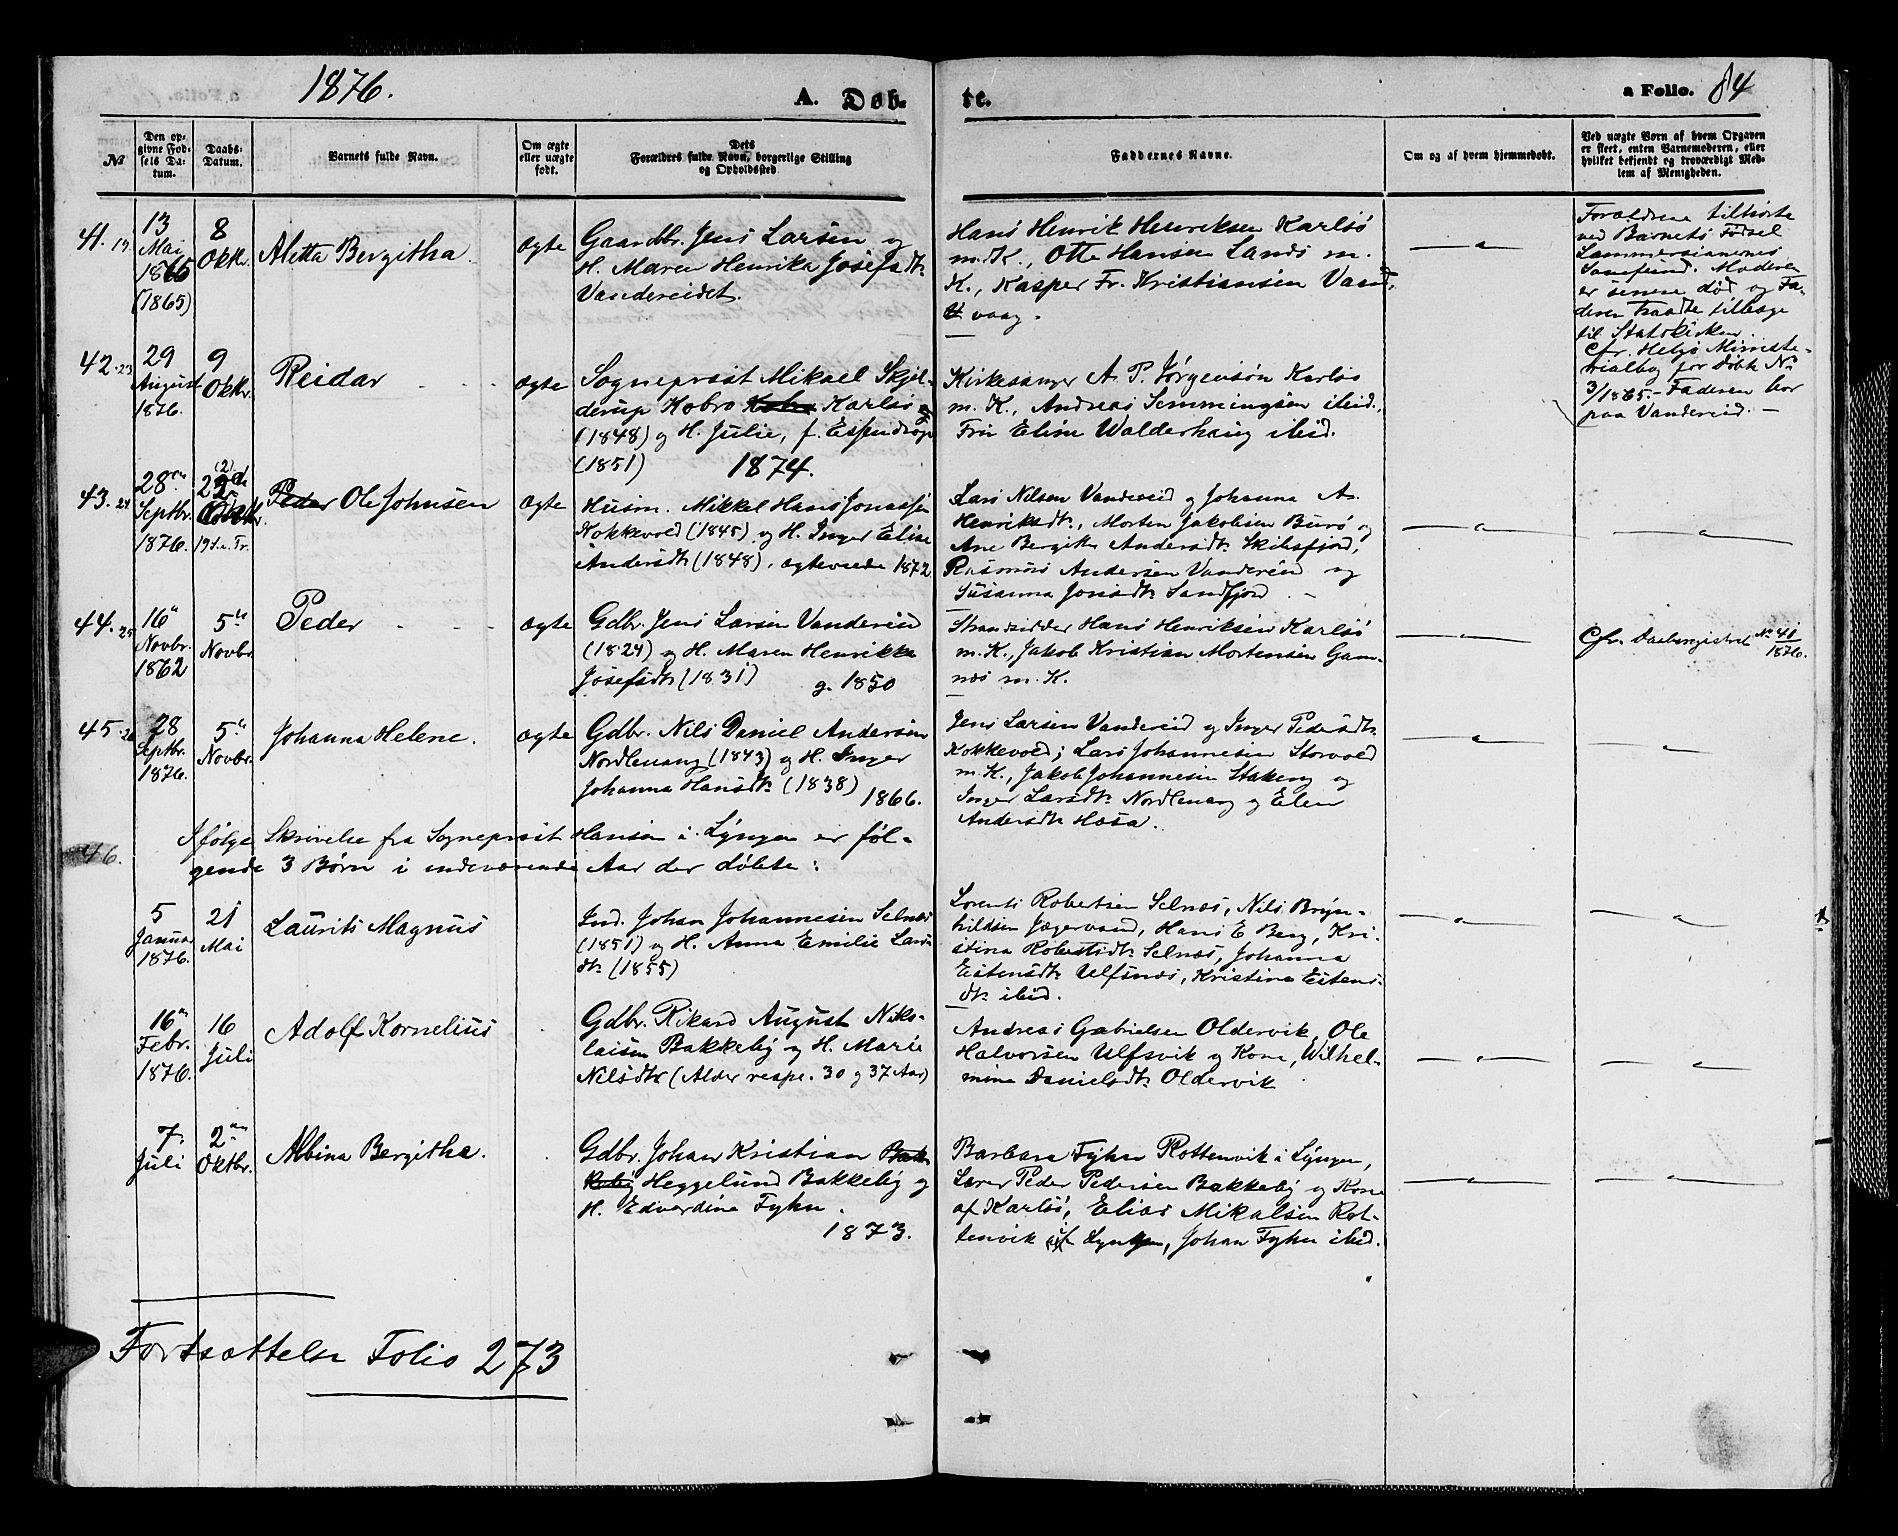 1876.
A. Døb-
te.
a Folio. 84
№
Den op-
givne Fød-
sels Da-
tum.
Daabs-
Datum.
Barnets fulde Navn.
Om ægte
eller uægte
født.
Dets
Forældres fulde Navn, borgerlige Stilling
og Opholdssted.
Faddernes Navne.
Om og af hvem hjemmedøbt.
Ved uægte Børn af hvem Opgaven
er skeet, enten Barnemoderen, eller
hvilket bekjendt og troværdigt Med-
lem af Menigheden.
41.
13
Mai
1865
(1865)
8
Oktr.
Aletta Bergitha.
ægte
Gaardbr. Jens Larsen og
H. Maren Henrika Josefsdtr
Vandereidet.
Hans Henrik Henriksen Karlsö
m. K., Otte Hansen Lands m.
K., Kasper Fr. Kristiansen Vand,
vaag.
Forældrene tilhørte
ved Barnets Fødsel
Lammersianernes
Samfund. Moderen
er senere død og Fa-
deren traadte tilbage
til Statskirken.
Cfr. Helgö Ministe-
rialbog for Døbte No
3/1865. - Faderen bor
paa Vandereid. -
42. 23
29
August
1876.
9
Oktbr.
Reidar
ægte
Sogneprest Mikael Skjel-
derup Hobro Karlsö
(1848) og H. Julie, f. Espendrop
(1851) 1874.
Kirkesanger A. P. Jørgensön Karlsö
m. K., Andreas Semmingsen ibid.,
Frü Eline Walderhaug ibid.
43. 24
28
Septbr.
1876.
22
(2)
19 S. e. Tr.
Peder Ole Johnsen
ægte
Husm. Mikkel Hans Jonassen
Kokkevold (1845) og H. Inger Elise
Andersdtr (1848). ægteviede 1872
Lars Nilsen Vandereid og Johanna A.
Henriksdtr, Morten Jakobsen Burö og
Ane Bergitte Andersdtr Skibsfjord,
Rasmus Andersen Vandereid og
Susanna Jonsdtr Sandfjord. -
44. 25
16
Novbr.
1862
5
Novbr
Peder
ægte
Gdbr. Jens Larsen Vandereid
(1824) og H. Maren Henrikka
Josefsdtr (1831) g. 1850
Strandsidder Hans Henriksen Karlsö
m. K., Jakob Kristian Mortensen Gam-
nes m. K.
Cfr. Daabsregistret No 41/1876.
45. 26
28
Septbr.
1876.
5
Novbr.
Johanna Helene.
ægte
Gdbr. Nils Daniel Andersen
Nordlenang (1843) og H. Inger
Johanna Hansdtr (1838)
1866.
Jens Larsen Vandereid og Inger Pedersdtr
Kokkevold; Lars Johannesen Storvold
m. K., Jakob Johannesen Stakeng og
Inger Larsdtr Nordlenang og Elen
Andersdtr Hæsa.
46.
Ifølge Skrivelse fra Sogneprest Hansen i Lyngen er føl-
gende 3 Børn i indeværende Aar der döbte:
5
Januar
1876.
21
Mai
Laurits Magnus
Ind. Johan Johannesen Selnæs
(1851) og H. Anna Emilie Lars-
dtr (1855)
Lorents Robertsen Selnæs, Nils Bryn-
hildsen Jægervand, Hans E Berg, Kri-
stina Robertsdtr Selnæs, Johanna
Eitensdtr Ulfsnæs, Kristine Eitens-
dtr ibid.
16
Febr.
1876.
16
Juli
Adolf Kornelius
Gdbr. Rikard August Niko-
laisen Bakkeby og H. Marie
Nilsdtr (Alder resp. 30 og 37 Aar)
Andreas Gabrielsen Oldervik, Ole
Halvorsen Ulfsvik og Kone, Wilhel-
mine Danielsdtr Oldervik
7
Juli
2
Oktbr.
Albina Bergitha.
Gdbr. Johan Kristian Bak-
keby Heggelund Bakkeby og
H. Edvardine Fyhn.
1873.
Barbara Fyhn Rottenvik i Lyngen,
Lærer Peder Pedersen Bakkeby og Kone
af Karlsö, Elias Mikalsen Rot-
tenvik af Lyngen, Johan Fyhn ibid.
Fortsættelse Folio 273